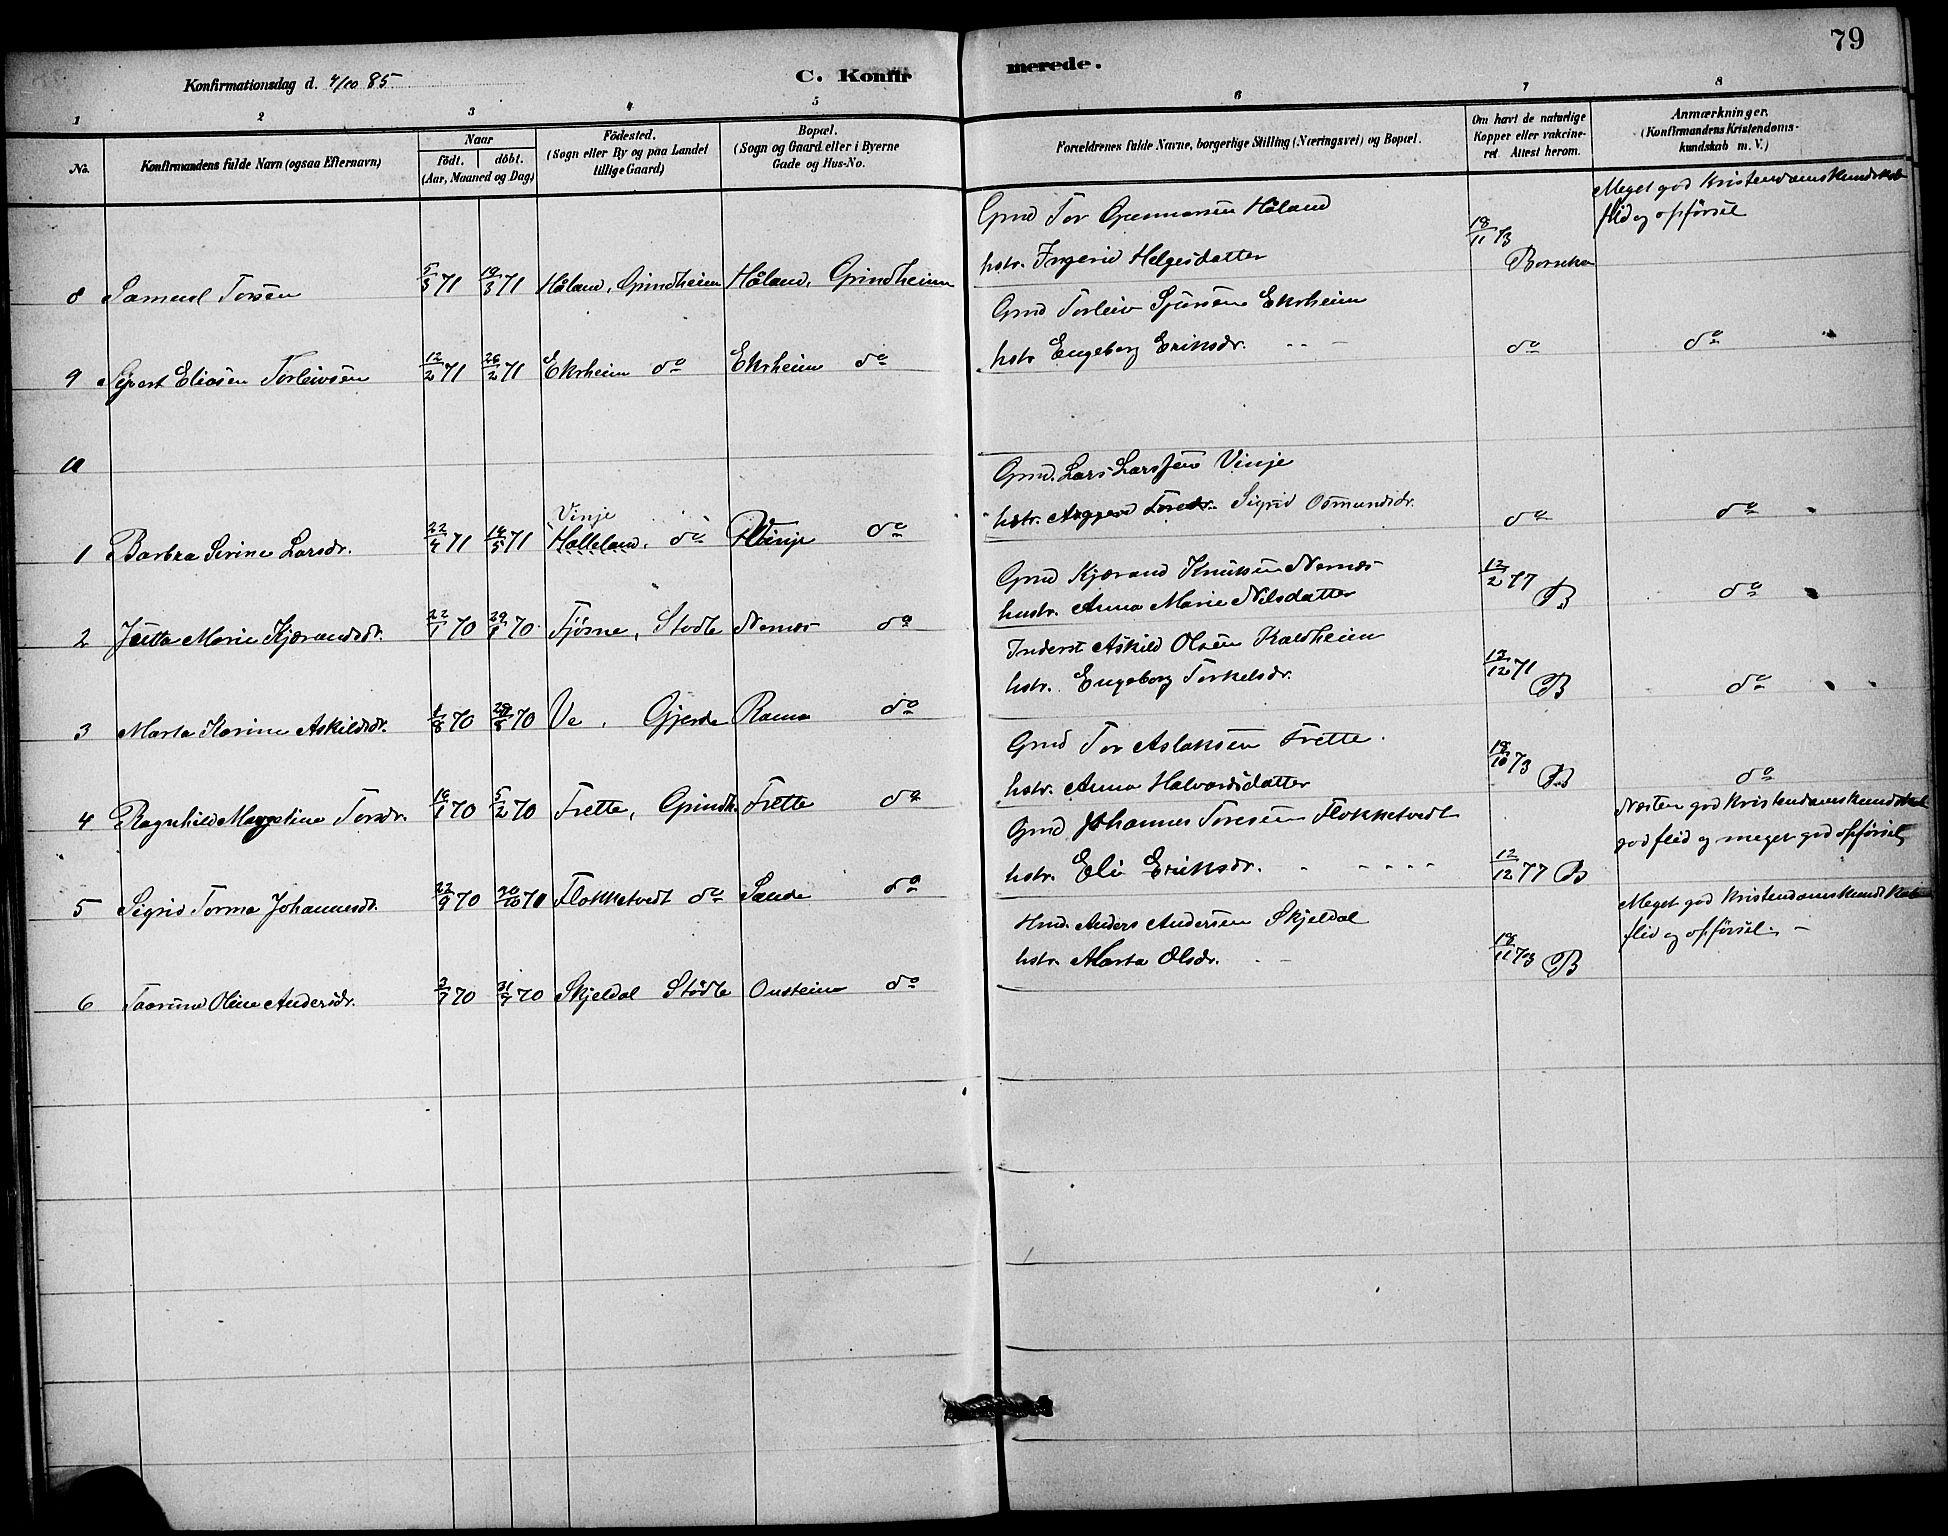 79
Konfirmationsdag d. 4/10 85
C. Konfirmerede.
1 2 3 4 5 6 7 8
No.
Konfirmandens fulde Navn (ogsaa Efternavn)
Naar
födt. döbt.
(Aar, Maaned og Dag)
Födested.
(Sogn eller By og paa Landet
tillige Gaard)
Bopæl.
(Sogn og Gaard eller i Byerne
Gade og Hus-No.
Forældrenes fulde Navne, borgerlige Stilling (Næringsvei) og Bopæl.
Om havt de naturlige
Kopper eller vakcine-
ret. Attest herom.
Anmærkninger.
(Konfirmandens Kristendoms-
kundskab m. V.)
8 Samuel Torsen 5/3 71 19/3 71 Håland, Grindheim Håland, Grindheim
Grmd Tor Gunnarsen Håland
hstr. Ingerid Helgesdatter
18/11 73
Meget god Kristendomskundskab
flid og opförsel
9 Sivert Eliasen Torleivsen 12/2 71 26/2 71 Ekrheim do Ekrheim do
Grmd Torleiv Sjursen Ekrheim
hstr Engeborg Eriksdr. do do
10
1 Barbra Serine Larsdr. 22/4 71 /5 71 Vinje
Halleland, do Vinje do
Grmd. Lars Larssen Vinje
hstr. Sigrid Osmundsdr. do do
2 Marie Kjærandsdr. 22/1 70 70 Tjörne, Stodle Nernes do
Grmd Kjærand Knutsen Nernes
hustr. Anna Marie Nilsdatter
12/2 77 B do
3 Marta Karine Askildsdr. 1/8 70 /8 70 Ve, Gjerde Rama do
Inderst Askild Olsen Kaldheim
hstr. Engeborg Torkelsdr.
13/12 71 B do
4 Ragnhild Torsdr. 16/1 70 5/2 70 Frette, Grindh. Frette do
Grmd Tor Aslaksen Frette.
hstr. Anna Halvardsdatter
18/10 73 B do
5 Sigrid Torma Johannesdr. 22/9 70 /10 70 Flokketvedt do Sande do
Grmd Johannes Toresen Flokketvedt
hstr. Eli Eriksdr.
12/12 77 B
Næsten god Kristendomskundskab
god flid og meget god opförsel,
6 Taarine Oline Andersdr. 3/7 70 31/7 70 Skjeldal Stödle Önsteim do
Hmd. Anders Andersen Skjeldal
hstr. Marta Olsdr.
18/11 73 B
Meget god Kristendomskundskab
flid og opförsel. –